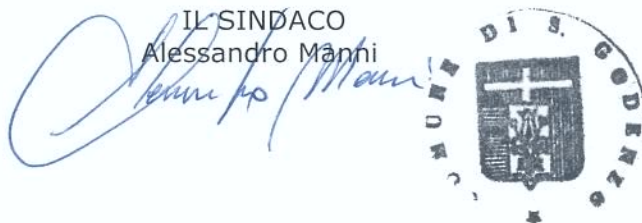 IL SINDACO
Alessandro Manni
Alessandro Manni
COMUNE DI S. GODENZO